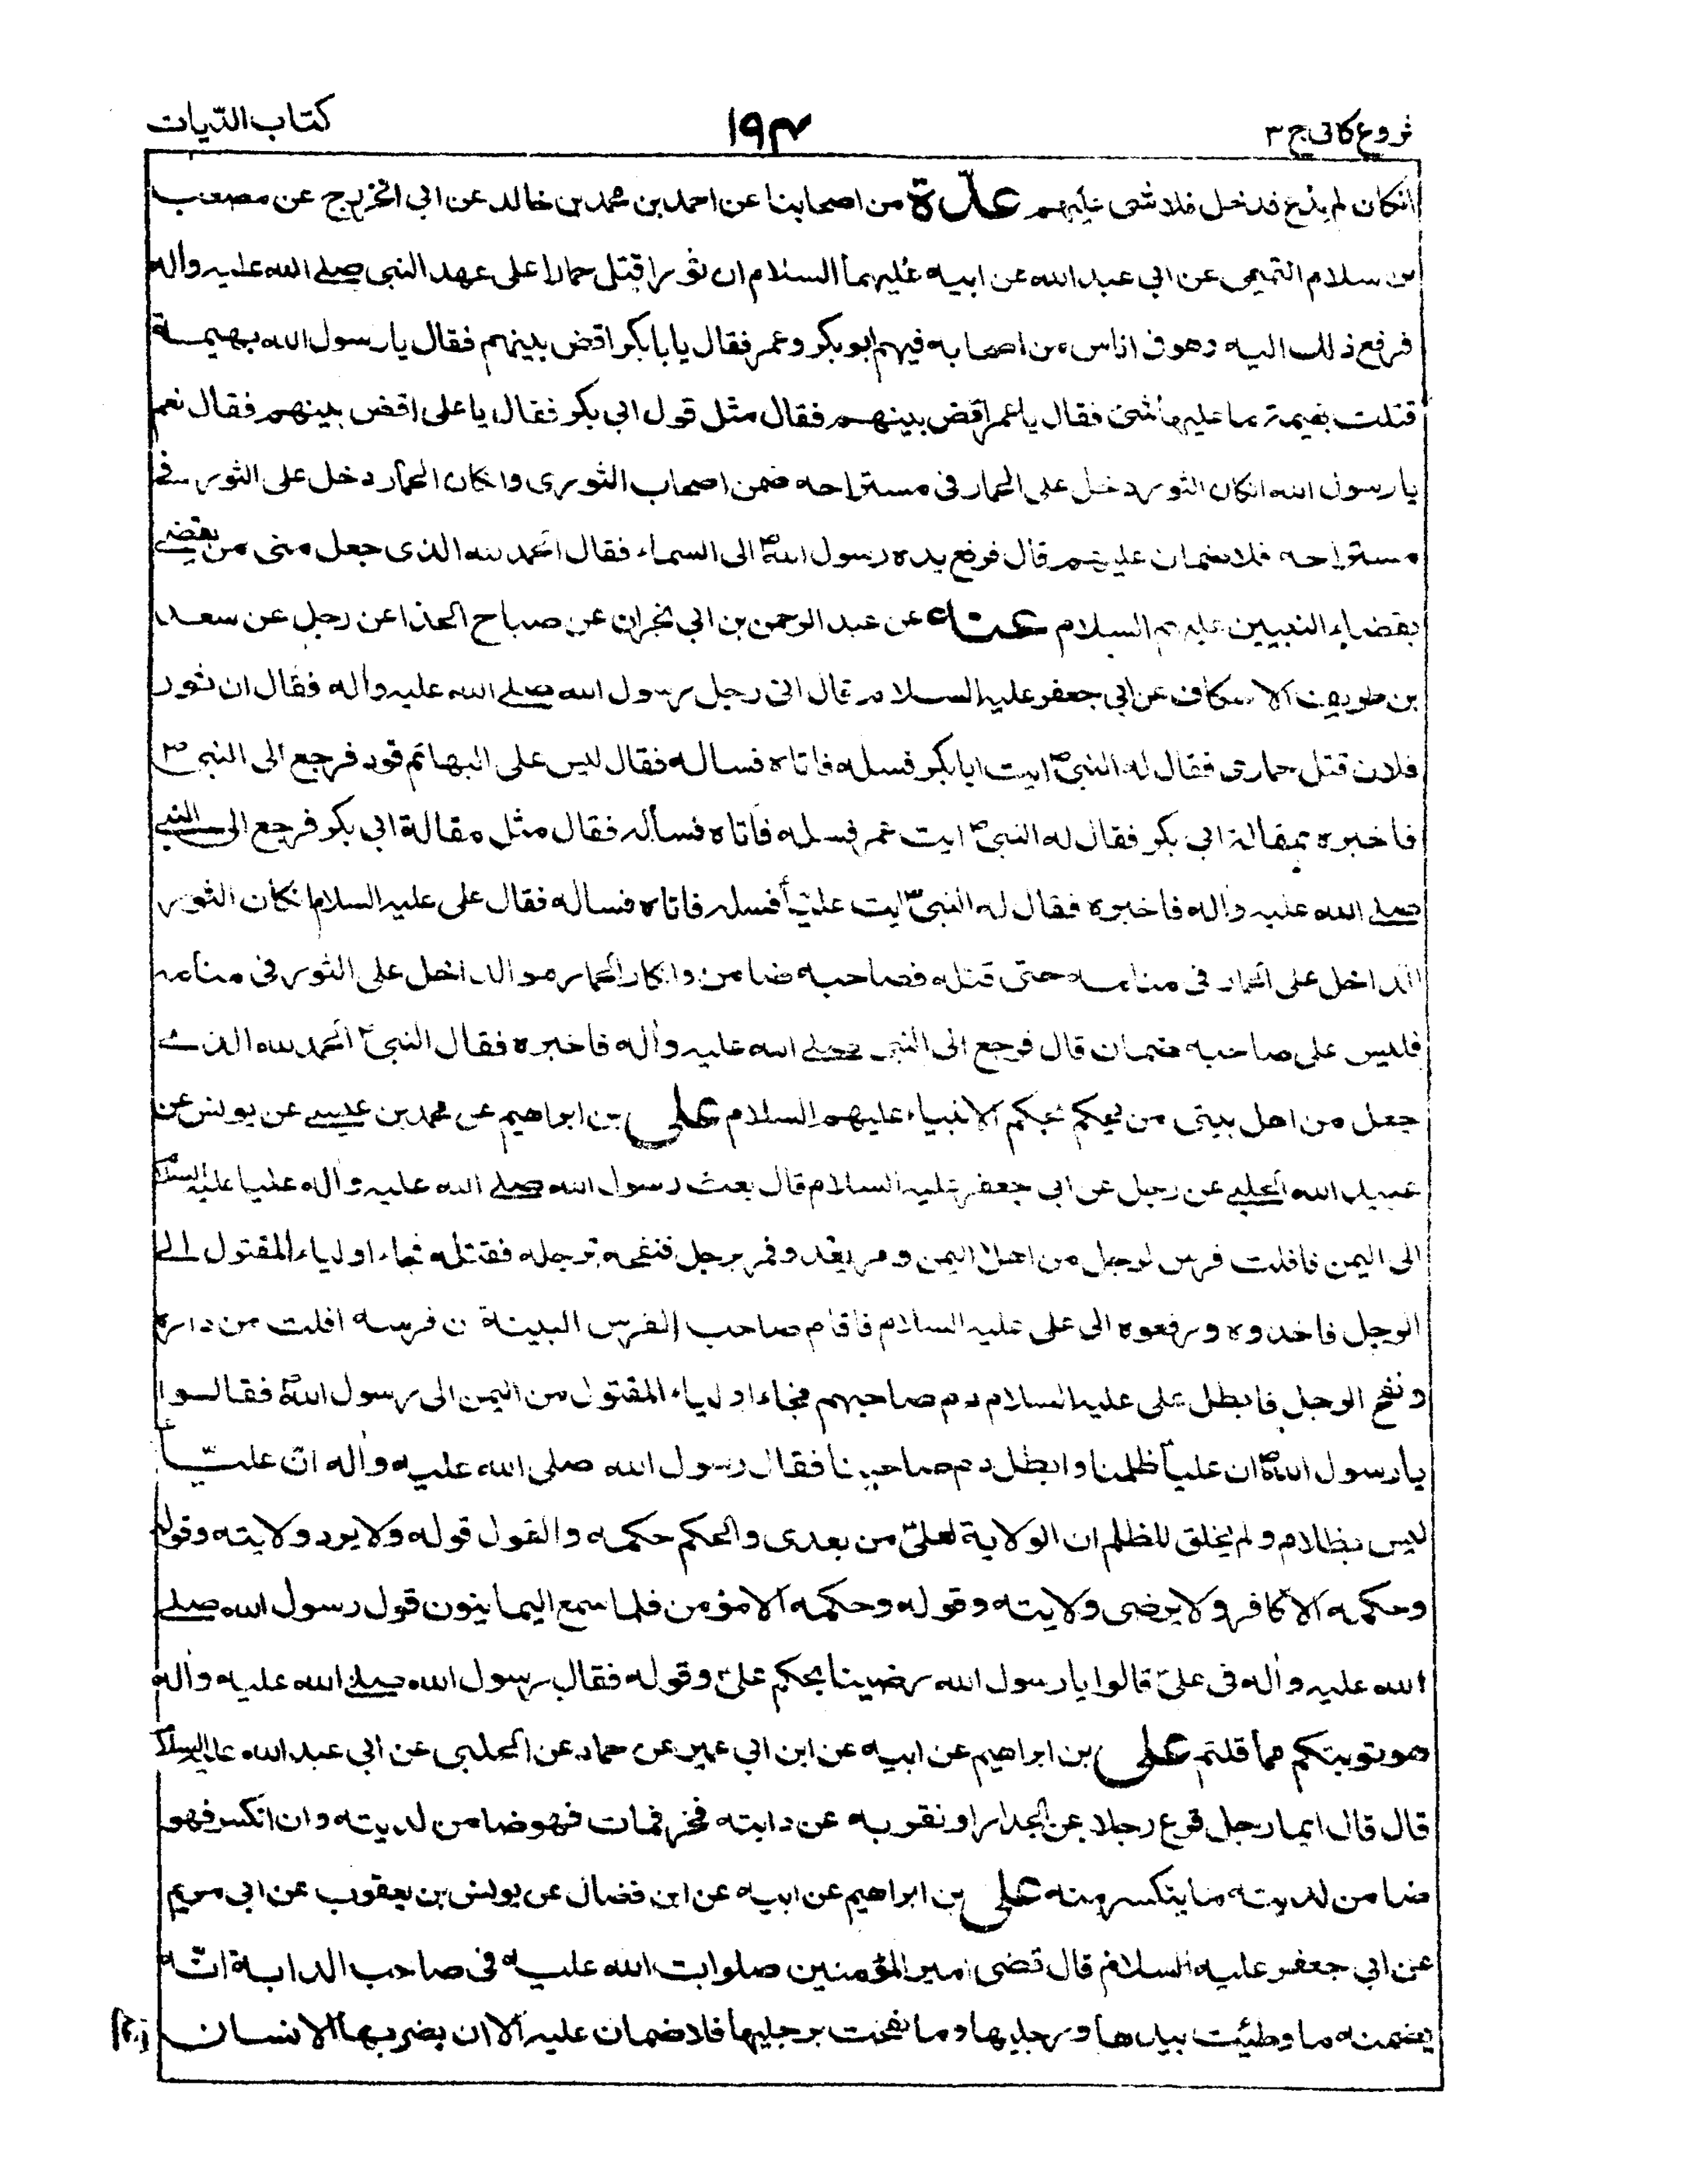 فروع كافى ج ٣
١٩٣
كتاب الدّيات
انكان لم يذع فدخل فلا شى عليهم عدّة من اصحابنا عن احمد بن محمد بن خالد عن ابى الخزرج عن مصعب
بن سلام التميمى عن ابى عبد الله عن ابيه عليهما السلام ان ثورا قتل حمارا على عهد النبى صلے الله عليه واله
فرفع ذلك اليه وهو فى اناس من اصحابه فيهم ابو بكر وعمر فقال يا بابكر اقض بينهم فقال يا رسول الله بهيمة
قتلت بهيمة ما عليها شئ فقال يا عمر اقض بينهم فقال مثل قول ابى بكر فقال يا على اقض بينهم فقال نعم
يا رسول الله انكان الثور دخل على الحمار فى مستراحه ضمن اصحاب الثورى وانكان الحمار دخل على الثور فى
مستراحه فلا ضمان عليهم قال فرفع يده رسول اللهص الى السماء فقال الحمد لله الذى جعل منى من يقضے
بقضاء النبيين عليهم السلام عنه عن عبد الرحمن بن ابى نجران عن صباح الحذا عن رجل عن سعد
بن طريف الاسكاف عن ابى جعفر عليه السلام قال اتى رجل رسول الله صلے الله عليه واله فقال ان ثور
فلان قتل حمارى فقال له النبىص ايت ابا بكر فسله فاتاه فساله فقال ليس على البهائم قود فرجع الى النبىص
فاخبره بمقالة ابى بكر فقال له النبىص ايت عمر فسله فاتاه فسأله فقال مثل مقالة ابى بكر فرجع الى النبے
صلے الله عليه واله فاخبره فقال له النبىص ايت علياً فسله فاتاه فساله فقال على عليه السلام انكان الثور
الداخل على الحمار فى منامه حتى قتله فصاحبه ضامن وانكان الحمار هو الداخل على الثور فى منامه
فليس على صاحبه ضمان قال فرجع الى النبى صلے الله عليه واله فاخبره فقال النبىص الحمد لله الذے
جعل من اهل بيتى من يحكم بحكم الانبياء عليهم السلام على بن ابراهيم عن محمد بن عيسے عن يونس عن
عبيد الله الحلبے عن رجل عن ابى جعفر عليه السلام قال بعث رسول الله صلے الله عليه واله عليا عليه السلام
الى اليمن فافلت فرس لرجل من اهل اليمن ومر يعدو فمر برجل فنفحه برجله فقتله فجاء اولياء المقتول الى
الرجل فاخذوه ورفعوه الى على عليه السلام فاقام صاحب الفرس البينة ان فرسه افلت من داره
ونفح الرجل فابطل على عليه السلام دم صاحبهم فجاء اولياء المقتول من اليمن الى رسول اللهص فقالوا
يا رسول اللهص ان علياً ظلمنا وابطل دم صاحبنا فقال رسول الله صلى الله عليه واله انّ عليّاً
ليس بظلام ولم يخلق للظلم ان الولاية لعلىّ من بعدى والحكم حكمه والقول قوله ولا يرد ولايته وقوله
وحكمه الا كافر ولا يرضى ولايته وقوله وحكمه الا مؤمن فلما سمع اليمانيون قول رسول الله صلے
الله عليه واله فى علىّ قالوا يا رسول الله رضينا بحكم علىّ وقوله فقال رسول الله صلے الله عليه واله
هو توبتكم مما قلتم على بن ابراهيم عن ابيه عن ابن ابى عمير عن حماد عن الحلبى عن ابى عبد الله عليه السلام
قال قال ايما رجل فزع رجلا عن الجدار او نفر به عن دابته فخر فمات فهو ضامن لديته وان انكسر فهو
ضامن لدية ما ينكسر منه على بن ابراهيم عن ابيه عن ابن فضال عن يونس بن يعقوب عن ابى مريم
عن ابى جعفر عليه السلام قال قضى امير المؤمنين صلوات الله عليه فى صاحب الدابة انّه
يضمنه ما وطئت بيدها ورجليها وما نفحت برجليها فلا ضمان عليه الا ان يضربها الانسان